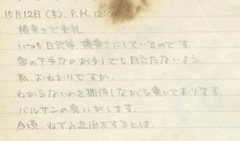 10月12日(木), P.M. 12:0
横書きで失礼。
いつも日記等、横書きにしているのです。
字の下手なのが少しでも目立たないよう。
私、おわかりですか。
わからないのを期待しながら書いております。
バルサンの臭いがします。
今頃、ねずみ退治をするとは。